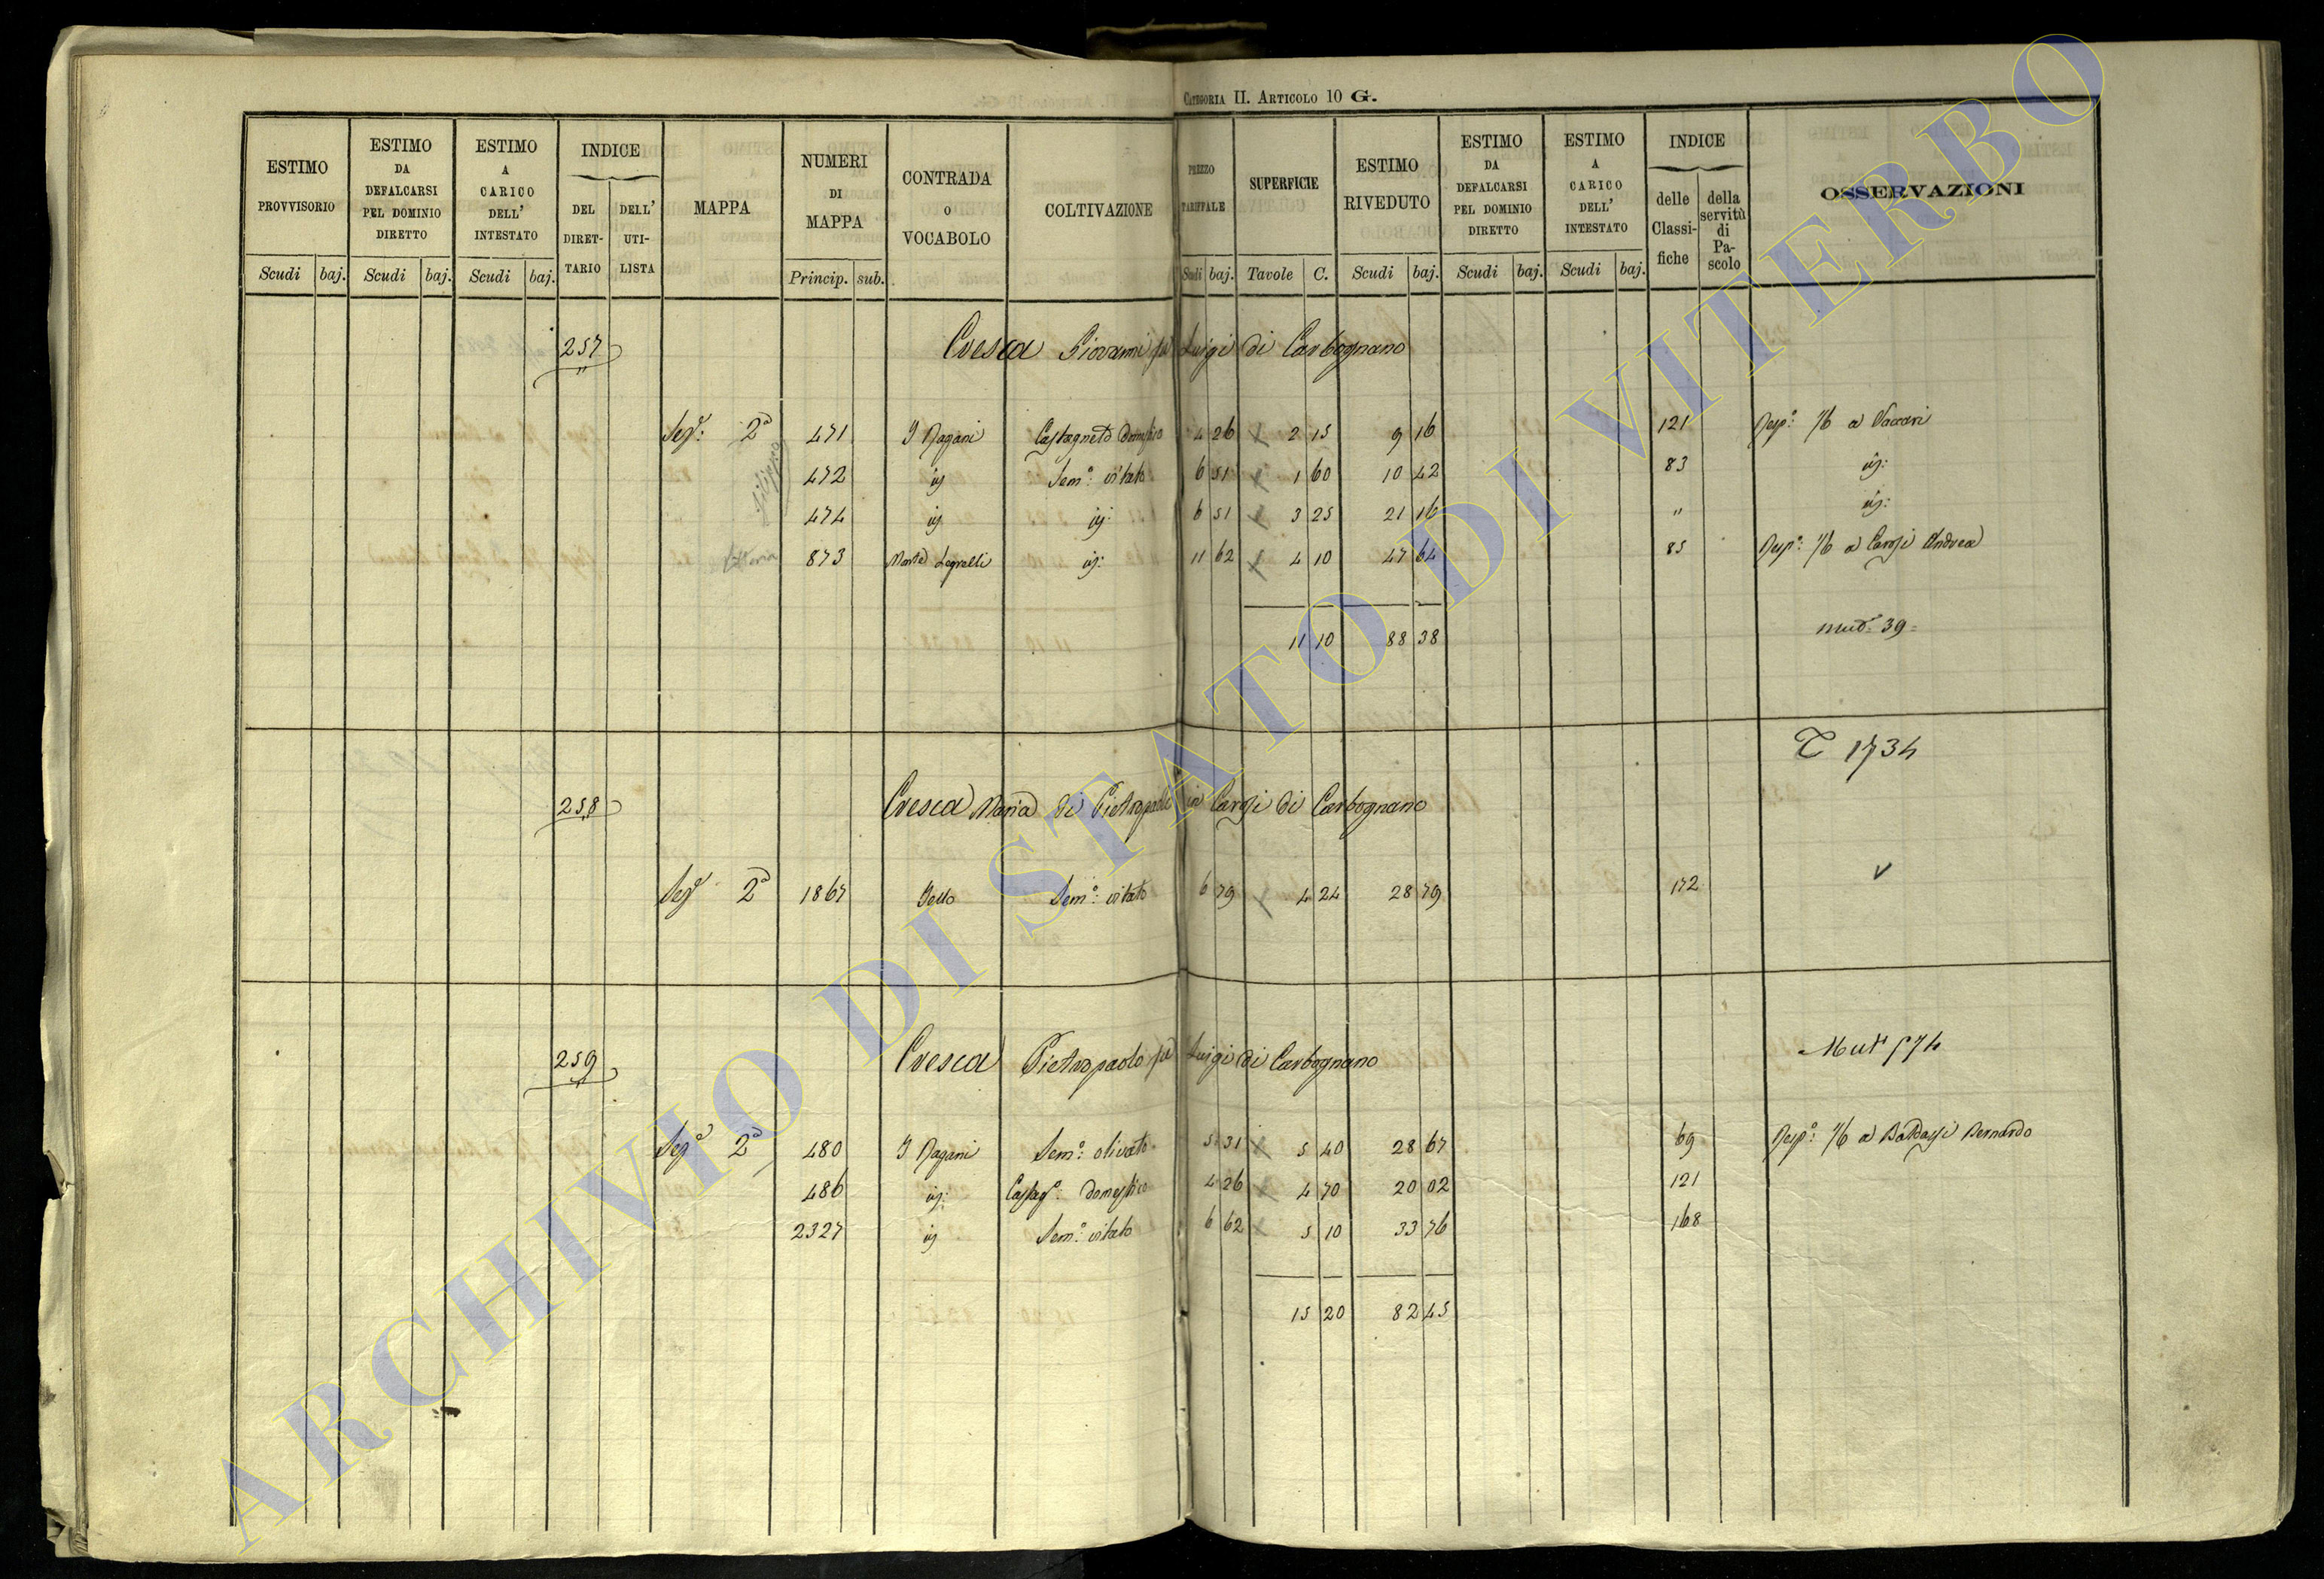 CATEGORIA II. ARTICOLO 10 G.
ESTIMO PROVVISORIO
ESTIMO DA DEFALCARSI PEL DOMINIO DIRETTO
ESTIMO A CARICO DELL' INTESTATO
INDICE
DEL DIRET- TARIO
DELL' UTI- LISTA
MAPPA
NUMERI DI MAPPA
CONTRADA O VOCABOLO
COLTIVAZIONE
PREZZO TARIFFALE
SUPERFICIE
ESTIMO RIVEDUTO
ESTIMO DA DEFALCARSI PEL DOMINIO DIRETTO
ESTIMO A CARICO DELL' INTESTATO
INDICE
delle Classi- fiche
della servitù di Pa- scolo
OSSERVAZIONI
Scudi baj. Scudi baj. Scudi baj. Princip. sub. Scudi baj. Tavole C. Scudi baj. Scudi baj. Scudi baj.
257 Cresca Giovanni fu Luigi di Carbognano
Segª: 2ª 471 I Pagani Castagneto domestico 4 26 2 15 9 16 121 Resp: 1/6 a Vaccari
472 ij Semº: vitato 6 51 1 60 10 42 83 ij:
474 ij ij: 6 51 3 25 21 16 " ij:
873 Monte ij: 11 62 4 10 47 64 85 Resp: 1/6 a Carosi Andrea
11 10 88 38 Mutª 39
T 1734
258 Cresca Maria di Pietropaolo in Carosi di Carbognano
Segª 2ª 1867 Semº: vitato 6 79 4 24 28 79 172
259 Cresca Pietropaolo fu Luigi di Carbognano Mutª 574
Segª 2ª 480 I Pagani Semº: olivato 5 31 5 40 28 67 69 Resp: 1/6 a Baldassi Bernardo
486 ij: Castagº: domestico 4 26 4 70 20 02 121
2327 ij Semº: vitato 6 62 5 10 33 76 168
15 20 82 45
ARCHIVIO DI STATO DI VITERBO